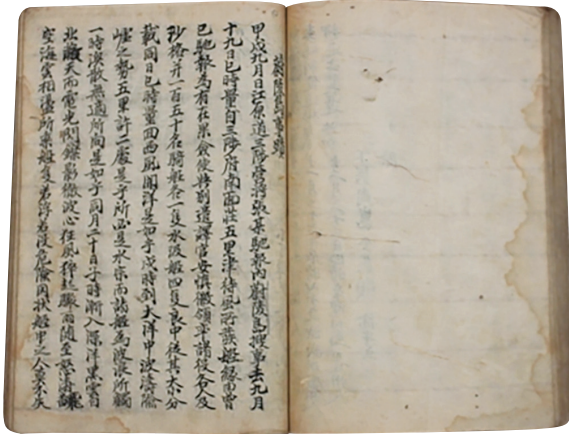 蔚陵島事蹟
甲戌九月日江原道三陟營將張某馳報內蔚陵島搜事去九月
十九日巳時量自三陟府南面莊五里津待風所發船緣由曾
已馳報爲有在果僉使與別遣譯官安慎徽領率諸役各人及
沙格并一百五十名騎船各一隻水汲船四隻良中從其大小分
載同日巳時量回西風開洋是如乎戌時到大洋中波濤險
巇之勢五里許二處是乎所必是水宗而諸船爲波浪所觸
一時渙散無適所向是如乎同月二十日子時漸入深洋黑雲自
北蔽天而電光閃鑠影徹波心狂風猝起驟雨隨至怒濤飜
空海雲相盪所乘船隻若浮若沒危險罔狀船中之人莫不失